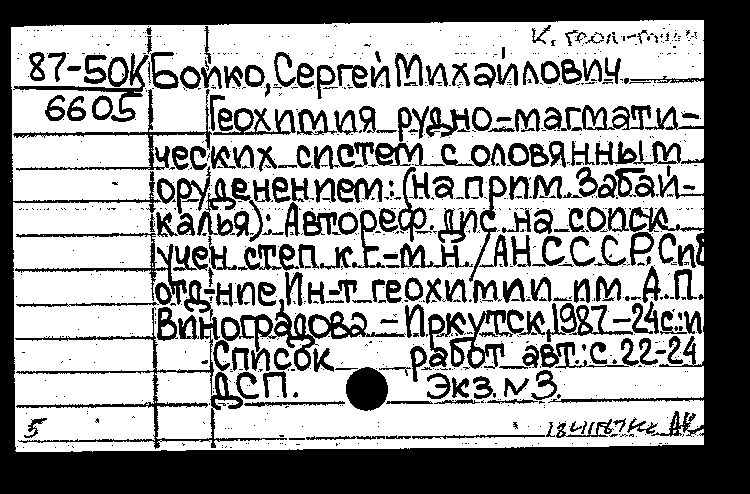 К. геол-мин
87-50К Бойко, Сергей Михайлович.
6605
Геохимия рудно-магмати-
ческих систем с оловянным
оруденением: (На прим. Забай-
калья): Автореф. дис. на соиск.
учен. степ. к.г.-м.н. / АН СССР. Сиб
отд-ние, Ин-т геохимии им. А.П.
Виноградова. – Иркутск, 1987 – 24с.: и
Список работ авт.: с. 22-24
ДСП. Экз. №3.
5